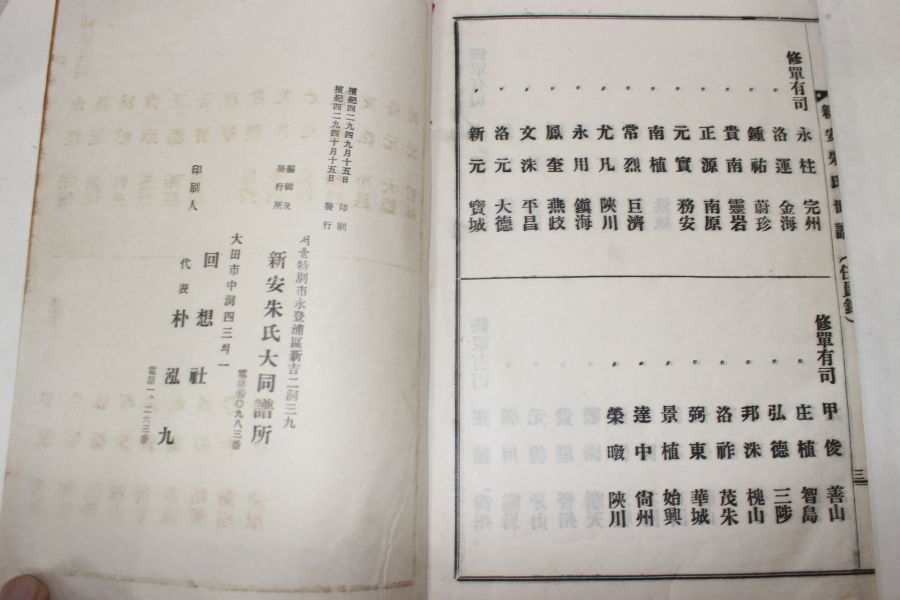 修單有司 永柱 完州
〃 洛運 金海
〃 鍾祐 蔚珍
〃 貴南 靈岩
〃 正源 南原
〃 元實 務安
〃 南植
〃 常烈 巨濟
〃 尤凡 陜川
〃 永用 鎭海
〃 鳳奎 燕岐
〃 文洙 平昌
〃 洛元 大德
〃 新元 寶城
新安朱氏世譜(任員錄) 三
修單有司 甲俊 善山
〃 庄植 智島
〃 弘德 三陟
〃 邦洙 槐山
〃 洛祚 茂朱
〃 弼東 華城
〃 景植 始興
〃 達中 尙州
〃 榮暾 陜川
檀紀四二九四九月十五日 印刷
檀紀四二九四十月十五日 發行
서울特別市永登浦區新吉二洞三九
編輯及
發行所 新安朱氏大同譜所
電話⑥〇九八三番
大田市中洞四三의一
印刷人 回想社
代表 朴泓九
電話一、二六三番